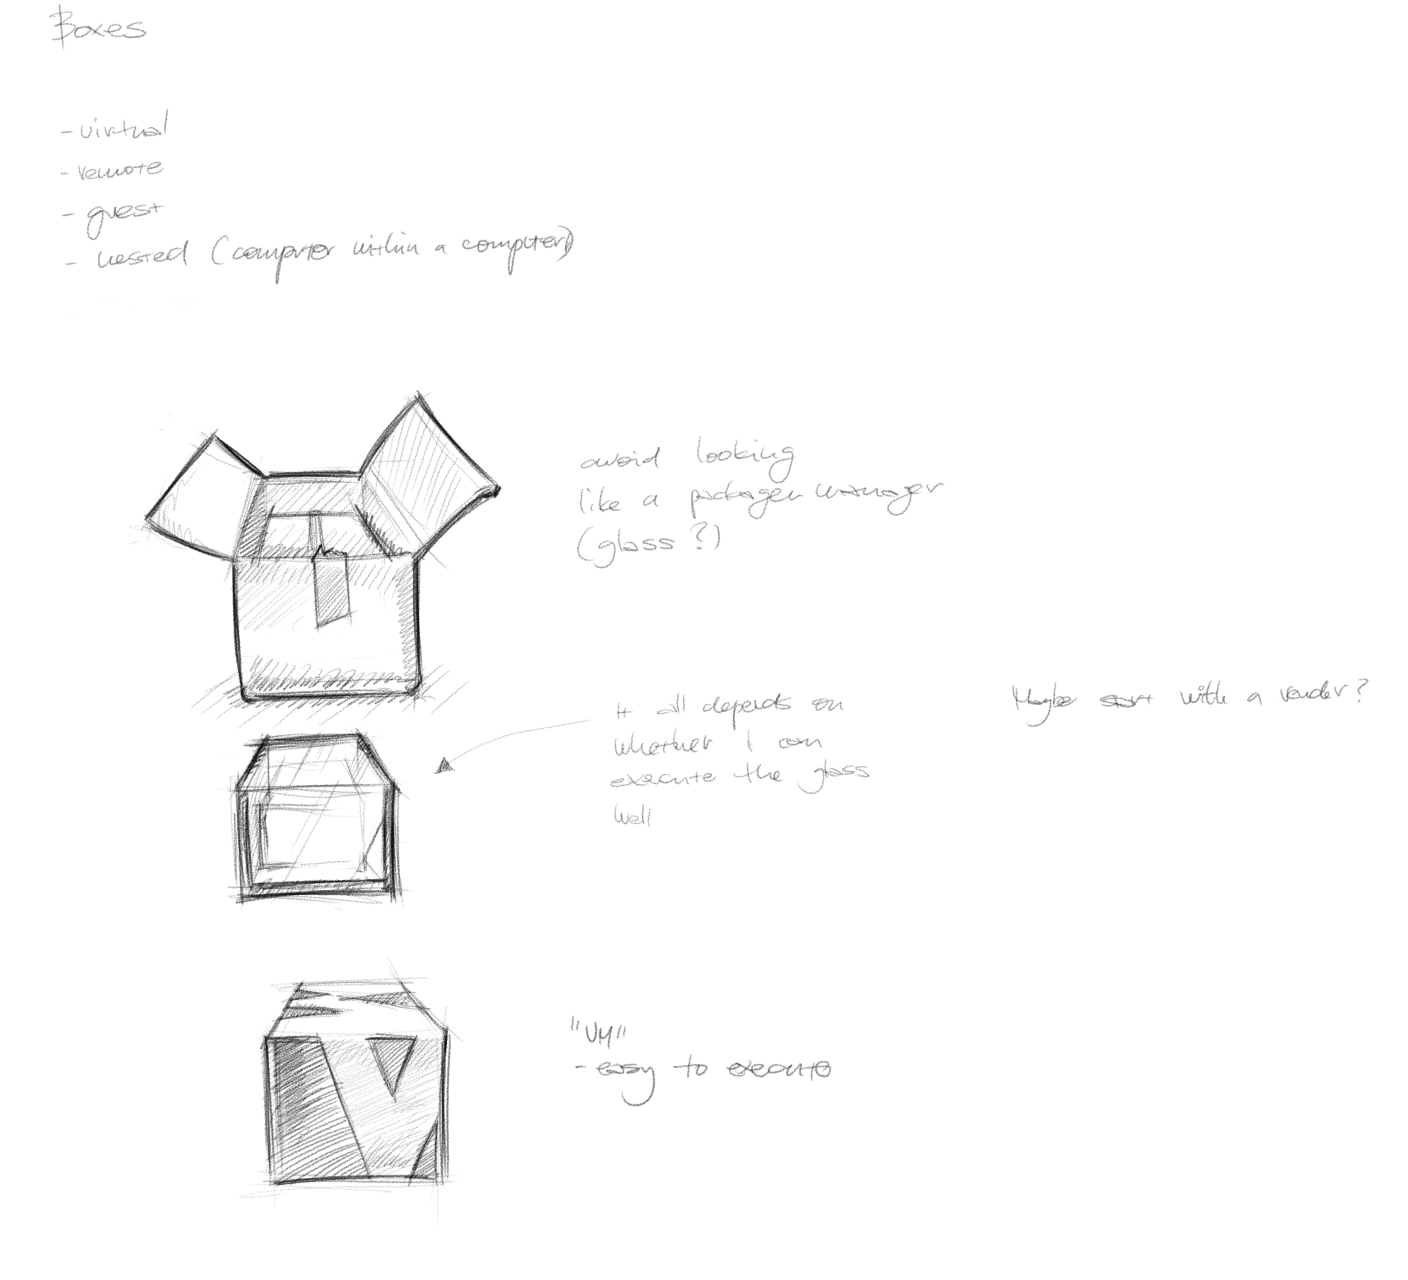 Boxes
- virtual
- remote
- guest
- nested (computer within a computer)
avoid looking
like a package manager
(glass?)
It all depends on
whether I can
execute the glass
well
Maybe start with a render?
"VM"
- easy to execute